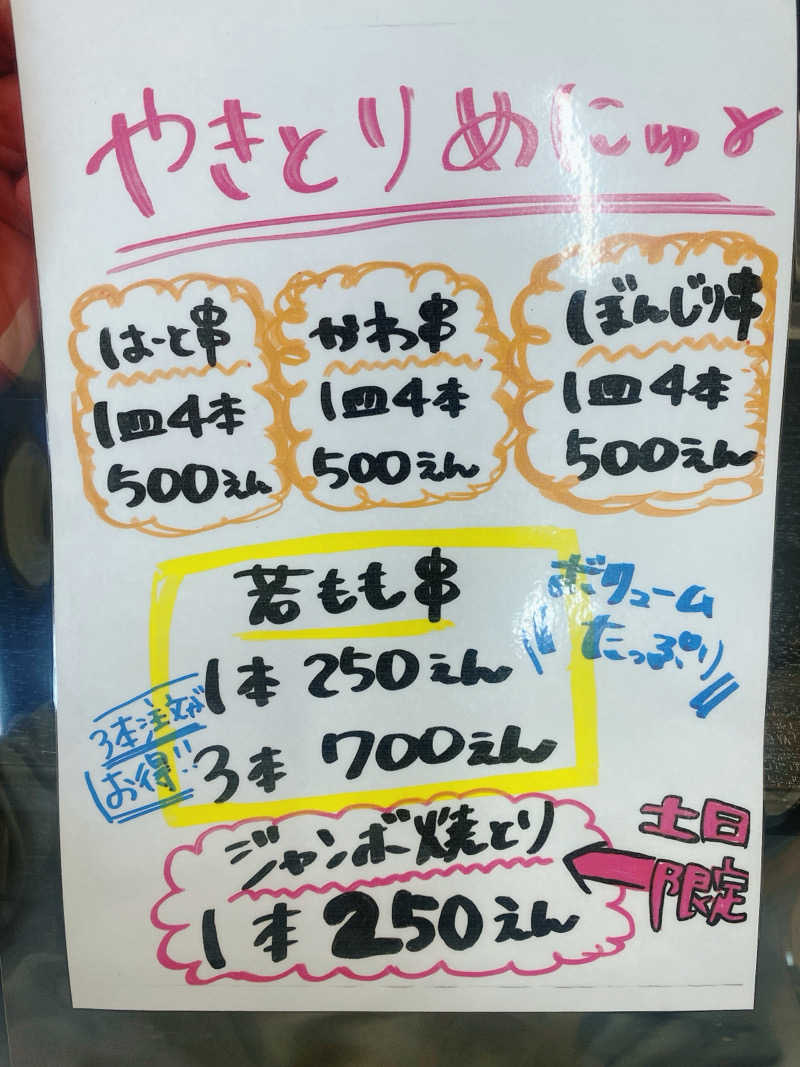 やきとりめにゅー
はーと串
1皿4本
500えん
かわ串
1皿4本
500えん
ぼんじり串
1皿4本
500えん
若もも串
1本 250えん
3本 700えん
ボリューム
たっぷり
3本注文が
お得!!
ジャンボ焼とり
1本 250えん
土日
限定